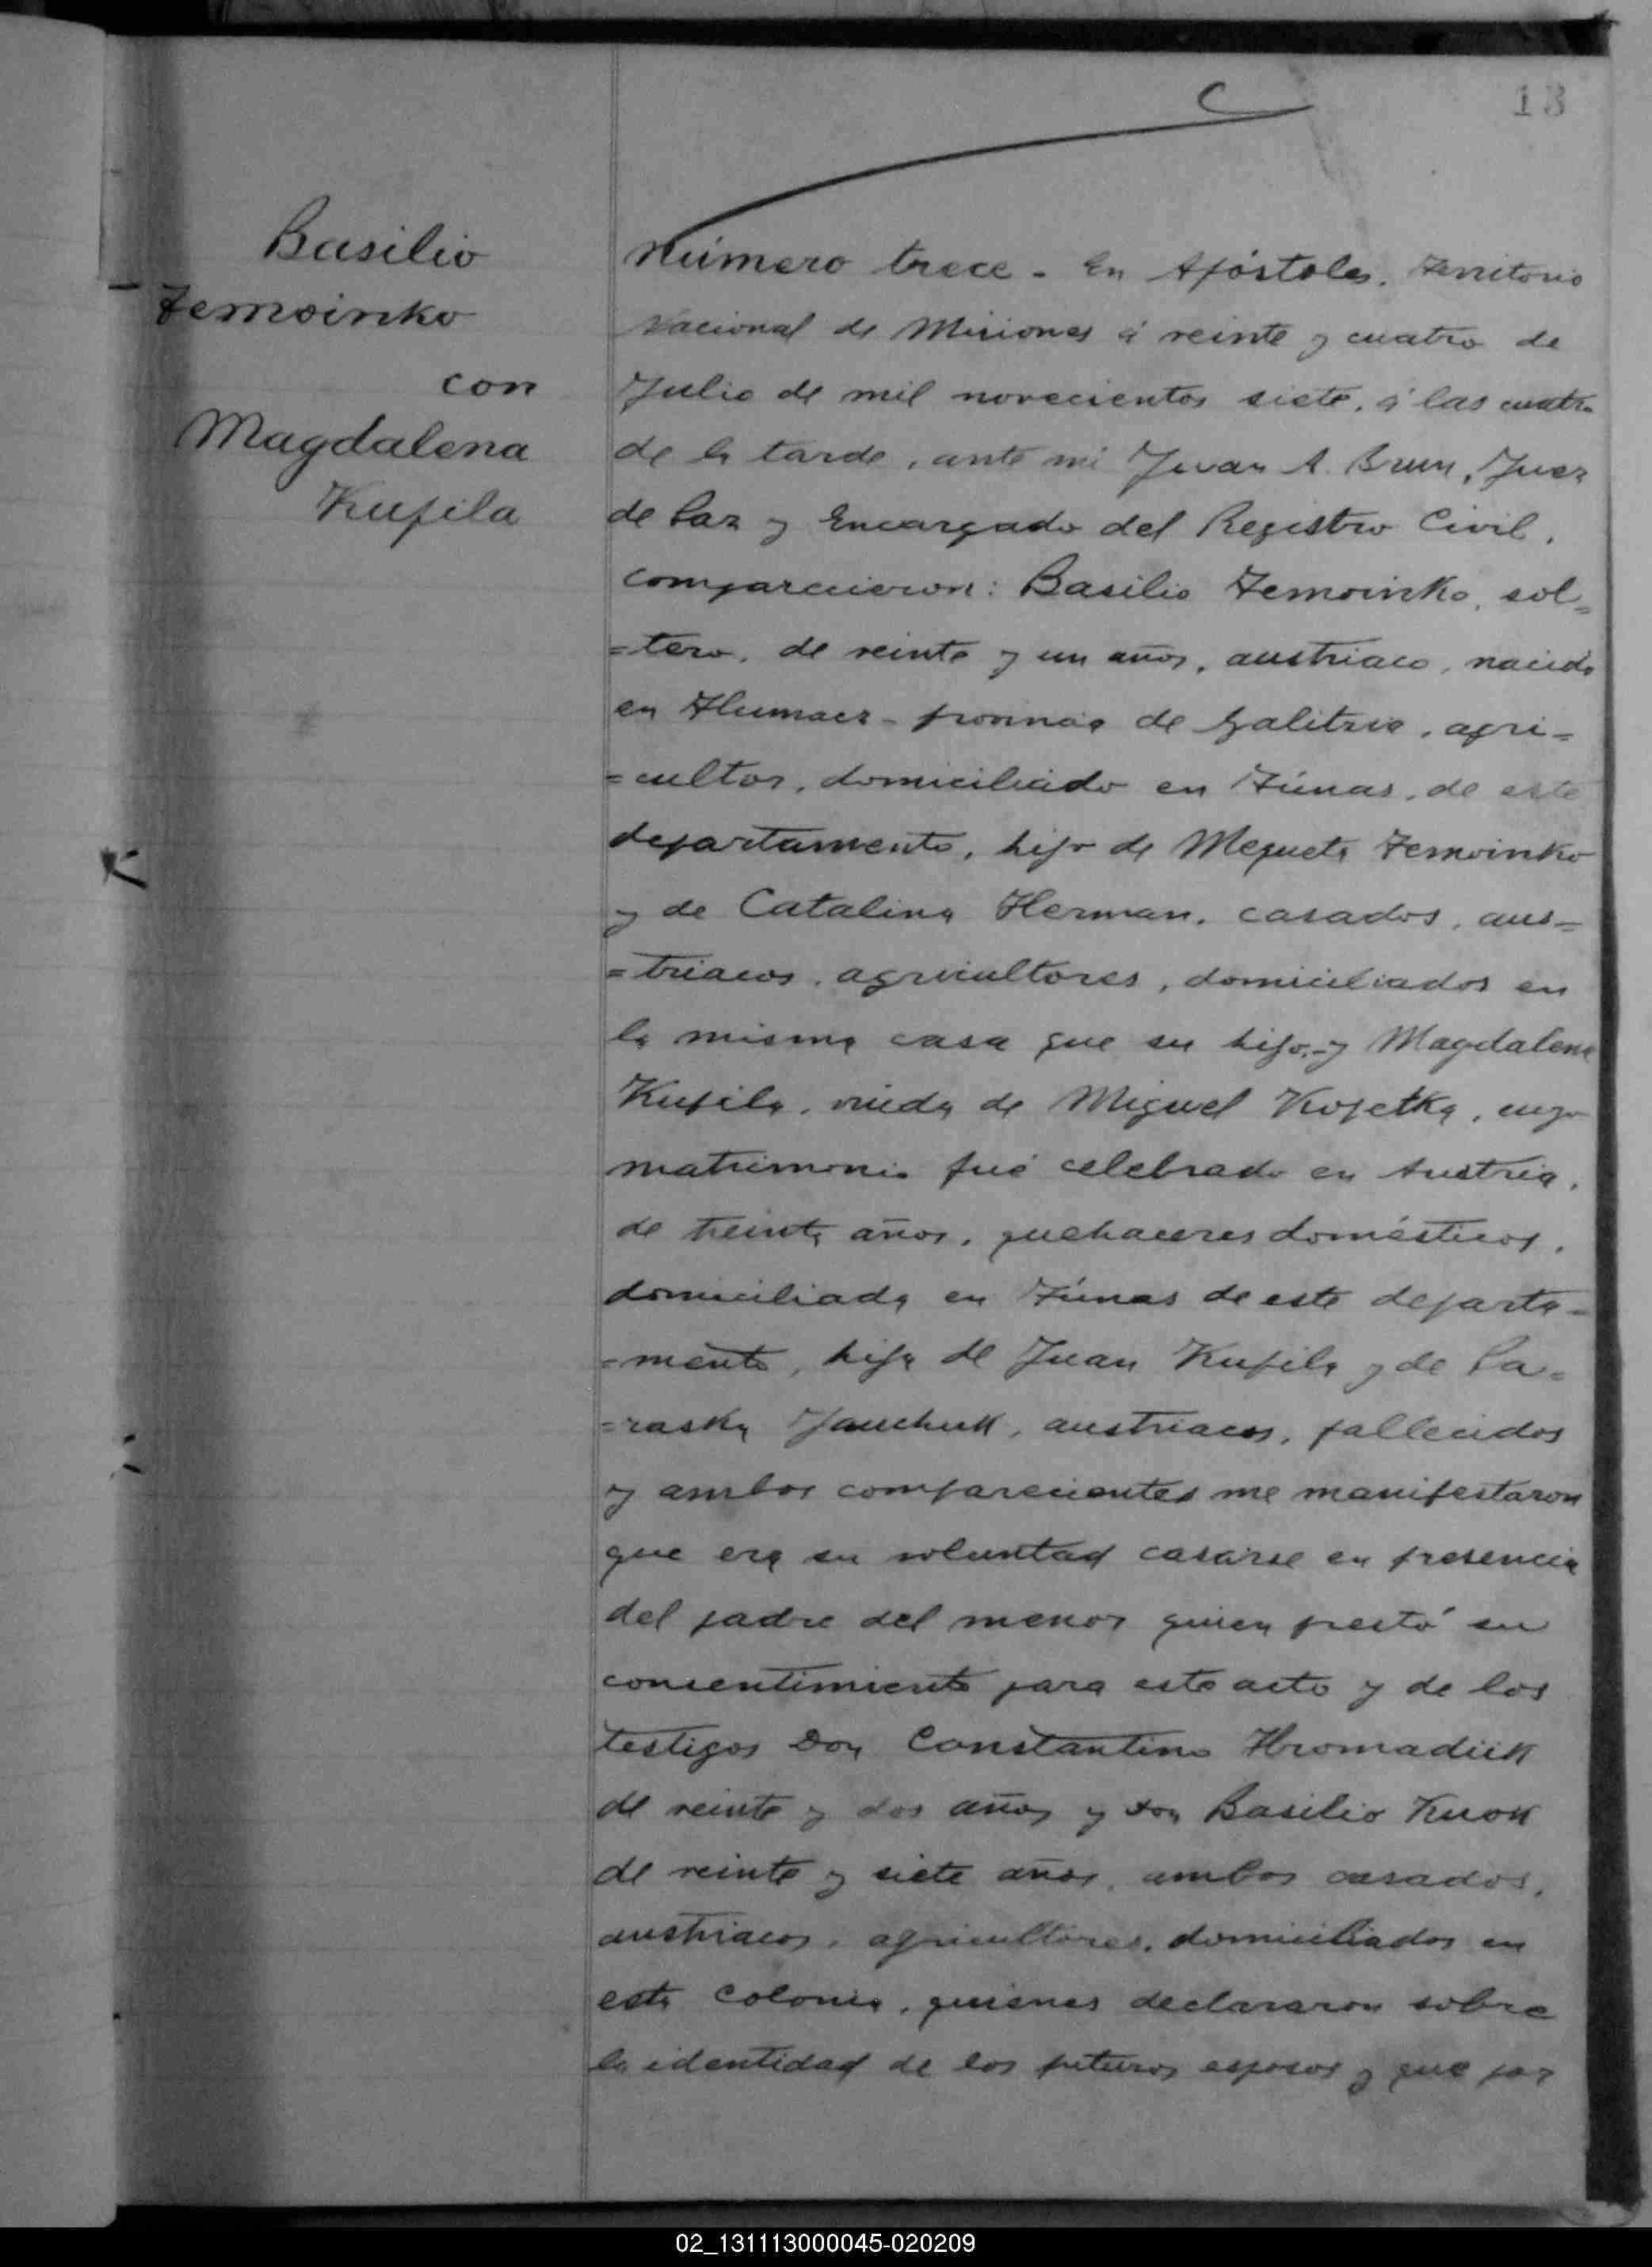 13
Basilio
Temoinko
con
Magdalena
Kupila
Número trece - En Apóstoles, Territorio
Nacional de Misiones á veinte y cuatro de
Julio de mil novecientos siete, á las cuatro
de la tarde, ante mi Juan A. Brun, Juez
de Paz y Encargado del Registro Civil,
comparecieron: Basilio Temoinko, sol=
=tero, de veinte y un años, austriaco, nacido
en Tlumacz - provincia de Galitzia, agri=
=cultor, domiciliado en Túnas, de este
departamento, hijo de Mequeta Temoinko
y de Catalina Herman, casados, aus=
=triacos, agricultores, domiciliados en
la misma casa que su hijo, y Magdalena
Kupila, viuda de Miguel Kopetka, cuyo
matrimonio fué celebrado en Austria,
de treinta años, quehaceres domésticos,
domiciliada en Túnas de este departa=
=mento, hija de Juan Kupila y de Pa=
=raska Jauchuk, austriacos, fallecidos
y ambos comparecientes me manifestaron
que era su voluntad casarse en presencia
del padre del menor quien prestó su
consentimiento para este acto y de los
testigos Don Constantino Hromadiik
de veinte y dos años y Don Basilio Kuok
de veinte y siete años, ambos casados,
austriacos, agricultores, domiciliados en
esta Colonia, quienes declararon sobre
la identidad de los futuros esposos y que por
02_131113000045-020209